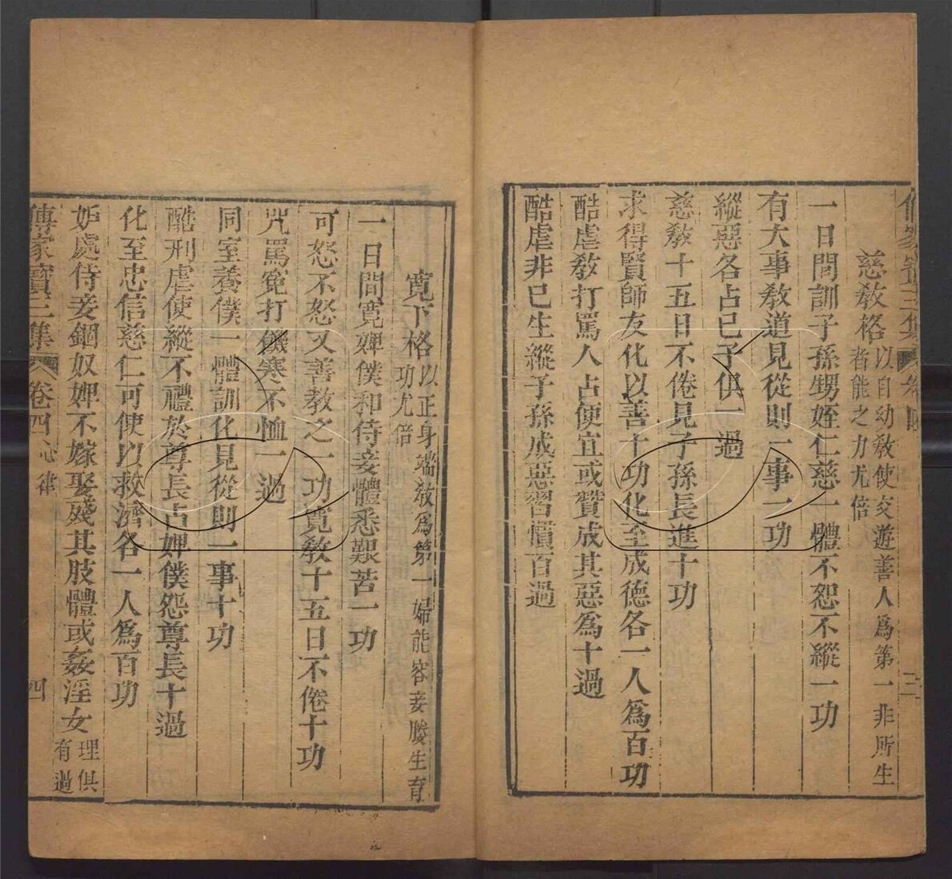 傳家寶三集 卷四 三
慈教格 以自幼敎使交遊善人爲第一非所生
者能之力尤倍
一日間訓子孫甥姪仁慈一體不恕不縱一功
有大事敎道見從則一事一功
縱惡各占已子俱一過
慈敎十五日不倦見子孫長進十功
求得賢師友化以善十功化至成德各一人爲百功
酷虐敎打罵人占便宜或贊成其惡爲十過
酷虐非已生縱子孫成惡習慣百過
寬下格 以正身端敎爲第一婦能容妾媵生育
功尤倍
一日間寬婢僕和侍妾體悉艱苦一功
可怒不怒又善教之一功寬敎十五日不倦十功
咒罵冤打饑寒不恤一過
同室養僕一體訓化見從則一事十功
酷刑虐使縱不禮於尊長占婢僕怨尊長十過
化至忠信慈仁可使以救濟各一人爲百功
妒處侍妾錮奴婢不嫁娶殘其肢體或姦淫女 理俱
有過
傳家寶三集 卷四 心律 四